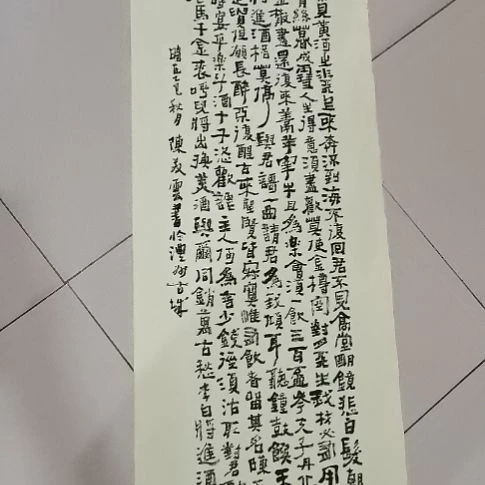 見黃河之水天上來奔流到海不復回君不見高堂明鏡悲白髮朝
青絲暮成雪人生得意須盡歡莫使金樽空對月天生我材必有用
金散盡還復來烹羊宰牛且為樂會須一飲三百盃岑夫子丹丘
進酒杯莫停與君謌一曲請君為我傾耳聽鐘鼓饌玉
足貴但願長醉不復醒古來聖賢皆寂寞惟有飲者留其名陳王
時宴平樂斗酒十千恣歡謔主人何為言少錢徑須沽取對君酌
馬千金裘呼兒將出換美酒與爾同銷萬古愁李白將進酒
時在乙巳秋月陳美雲書於澧州古城